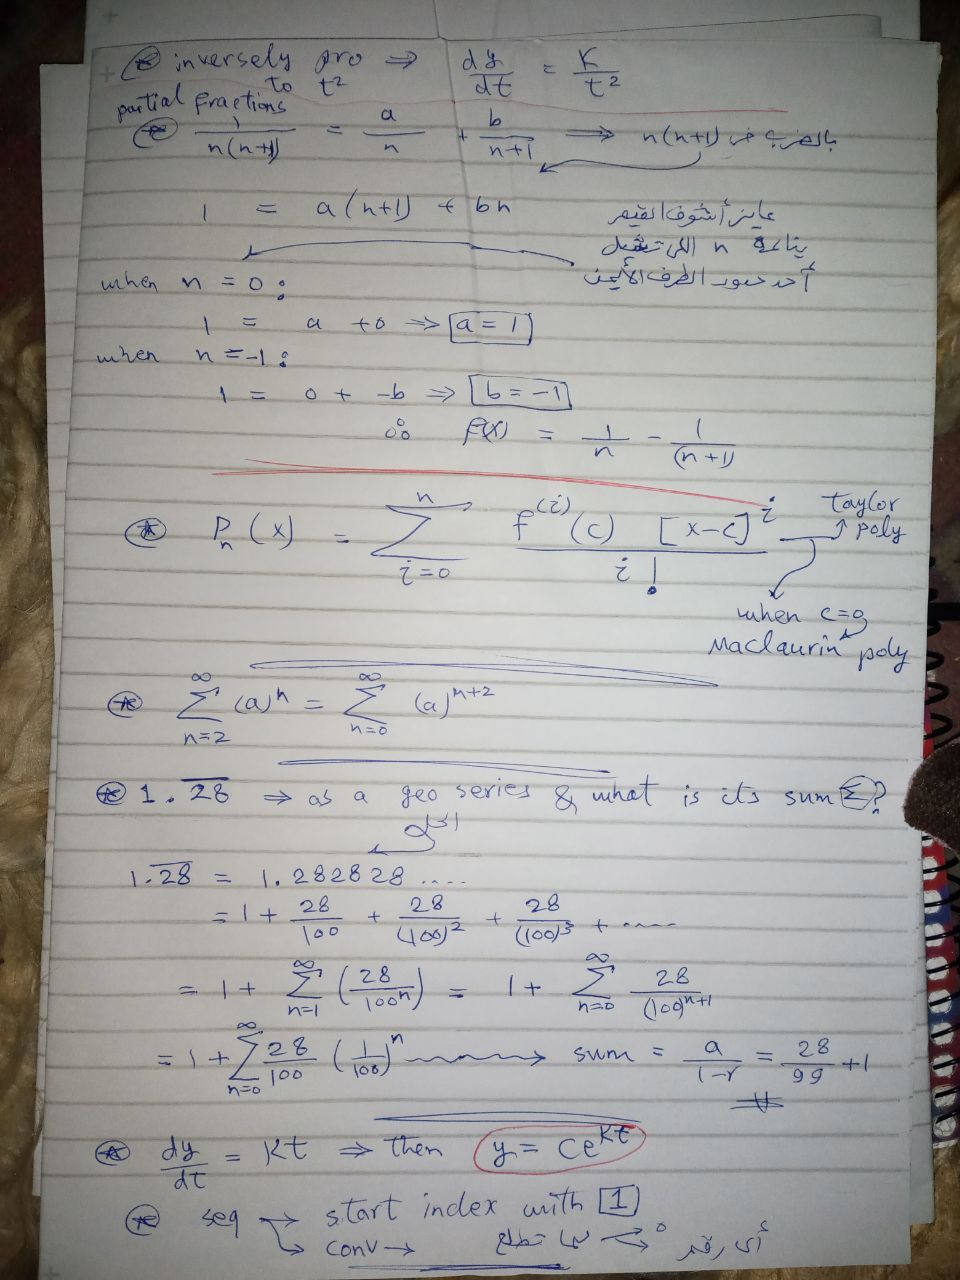 ⊛ inversely pro to t² ⇒ dy/dt = K/t²
partial fractions
⊛ 1/n(n+1) = a/n + b/n+1 ⇒ n(n+1) بالضرب في
1 = a(n+1) + bn
عايز أشوف القيم
بتاعة n اللي تشيل
أحد حدود الطرف الأيمن
when n = 0 :
1 = a + 0 ⇒ a = 1
when n = -1 :
1 = 0 + -b ⇒ b = -1
∴ F(x) = 1/n - 1/(n+1)
⊛ Pn(x) = Σ n i=0 f^(i)(c) [x-c]^i / i! → Taylor poly
when c=0
Maclaurin poly
⊛ Σ ∞ n=2 (a)^n = Σ ∞ n=0 (a)^n+2
⊛ 1.2̅8̅ ⇒ as a geo series & what is its sum Σ?
الحل
1.2̅8̅ = 1.282828....
= 1 + 28/100 + 28/(100)² + 28/(100)³ + .....
= 1 + Σ ∞ n=1 (28/100^n) = 1 + Σ ∞ n=0 28/(100)^n+1
= 1 + Σ ∞ n=0 28/100 (1/100)^n → sum = a/1-r = 28/99 + 1
⊛ dy/dt = Kt ⇒ then y = Ce^Kt
⊛ seq → start index with 1
conv → لما تطلع 0
أي رقم